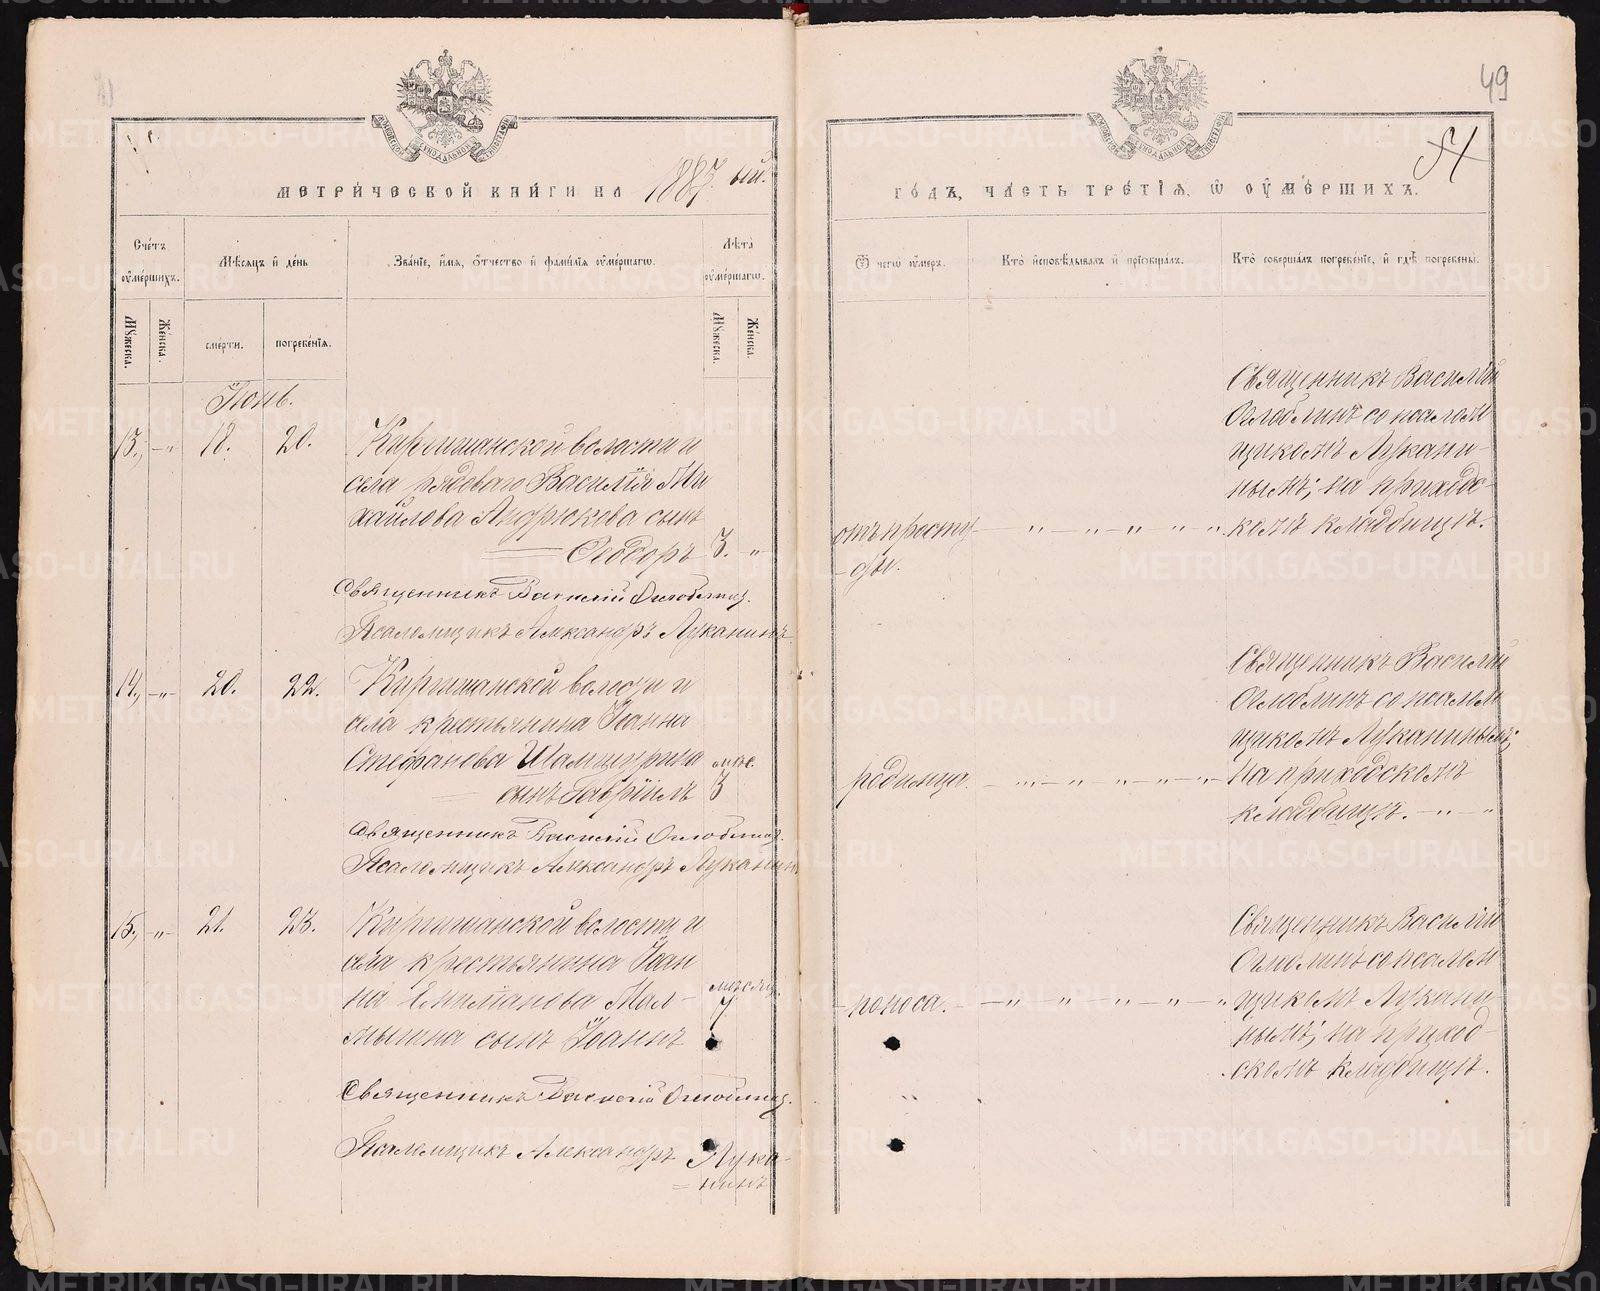 49
51
МЕТРИЧЕСКОЙ КНИГИ НА 1887. ый.
ГОДЪ, ЧАСТЬ ТРЕТІЯ, Ѡ ОУМЕРШИХЪ.
Счетъ оумершихъ.
Мѣсяцъ и день
Званіе, имя, отчество и фамилія оумершагѡ.
Лѣта оумершагѡ.
Ѿ чегѡ оумеръ.
Кто исповѣдывалъ и пріобщалъ.
Кто совершалъ погребеніе, и гдѣ погребены.
Мужеска.
Женска.
смерти.
погребенія.
Мужеска.
Женска.
Іюнь.
13. „ 18. 20.
Киргишанской волости и
села рядоваго Василія Ми
хайлова Андрюкова сынъ
Ѳеодоръ 3. „
отъ просту
ды.
Священникъ Василій
Оглоблинъ со псалом
щикомъ Лукани-
нымъ; на приходс-
комъ кладбищѣ.
Священникъ Василій Оглоблинъ.
Псаломщикъ Александръ Луканинъ
14. „ 20. 22.
Киргишанской волости и
села крестьянина Іоанна
Стефанова Шамшурина
сынъ Гавріилъ
мѣс.
3
родимца.
Священникъ Василій
Оглоблинъ со псалом
щикомъ Луканинымъ;
на приходскомъ
кладбищѣ.
Священникъ Василій Оглоблинъ.
Псаломщикъ Александръ Луканинъ
15. „ 21. 23.
Киргишанской волости и
села крестьянина Іоан
на Емилианова Мал-
мыгина сынъ Іоаннъ
мѣсяц.
7
поноса.
Священникъ Василій
Оглоблинъ со псалом
щикомъ Лукани
нымъ; на приход-
скомъ кладбищѣ.
Священникъ Василій Оглоблинъ.
Псаломщикъ Александръ Лука-
нинъ
METRIKI.GASO-URAL.RU